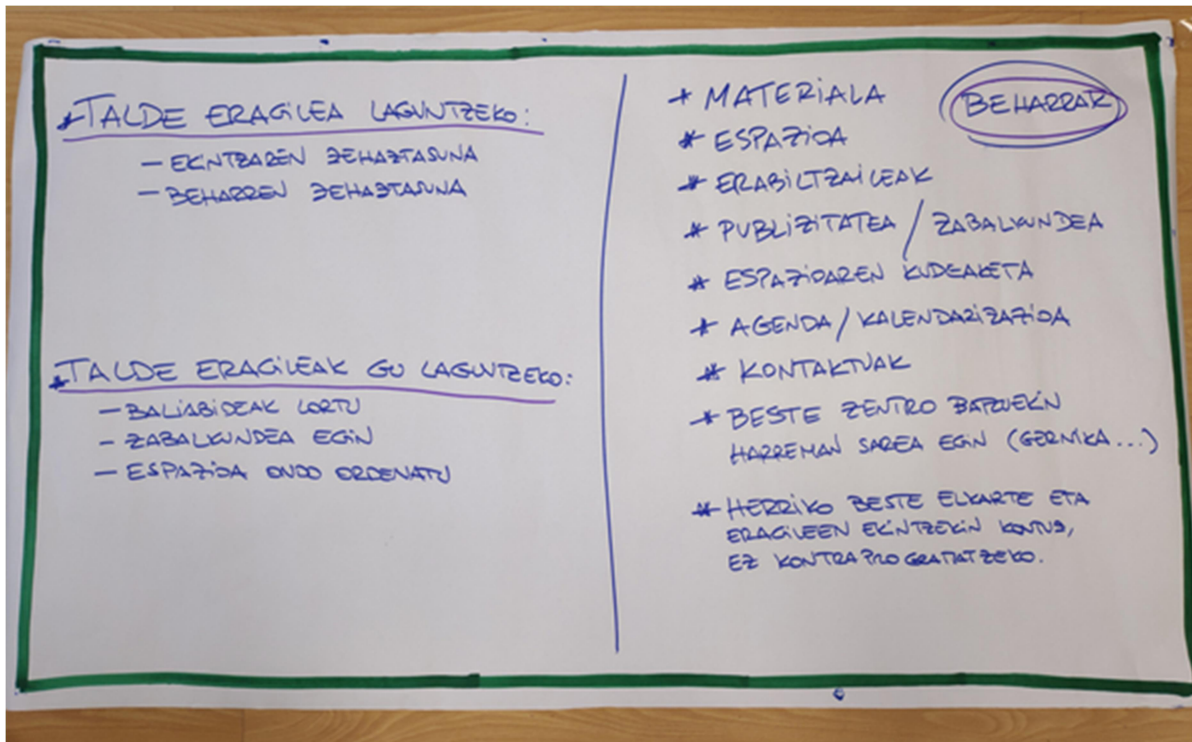 * TALDE ERAGILEA LAGUNTZEKO:
- EKINTZAREN ZEHAZTASUNA
- BEHARREN ZEHAZTASUNA
* TALDE ERAGILEAK GU LAGUNTZEKO:
- BALIABIDEAK LORTU
- ZABALKUNDEA EGIN
- ESPAZIOA ONDO ORDENATU
BEHARRAK
* MATERIALA
* ESPAZIOA
* ERABILTZAILEAK
* PUBLIZITATEA / ZABALKUNDEA
* ESPAZIOAREN KUDEAKETA
* AGENDA / KALENDARIZAZIOA
* KONTAKTUAK
* BESTE ZENTRO BATZUEKIN
HARREMAN SAREA EGIN (GERNIKA...)
* HERRIKO BESTE ELKARTE ETA
ERAGILEEN EKINTZEKIN KONTUZ,
EZ KONTRAPROGRAMATZEKO.